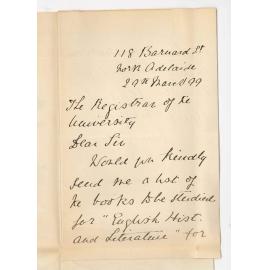 118 Barnard St
North Adelaide
29th March 99
The Registrar of the
University
Dear Sir
Would you kindly
send me a list of
the books to be studied
for "English Hist.
and Literature" for